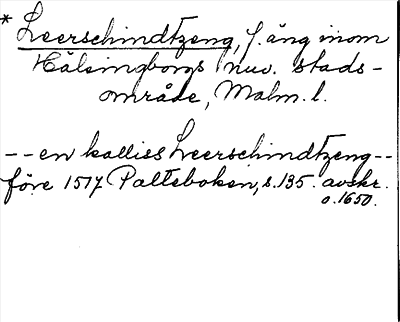 * Leerschindtzeng, f. äng inom
Hälsingborgs nuv. stads-
område, Malm. l.
-- en kalliss Leerschindtzeng --
före 1517 Palteboken, s. 135. avskr.
o. 1650.